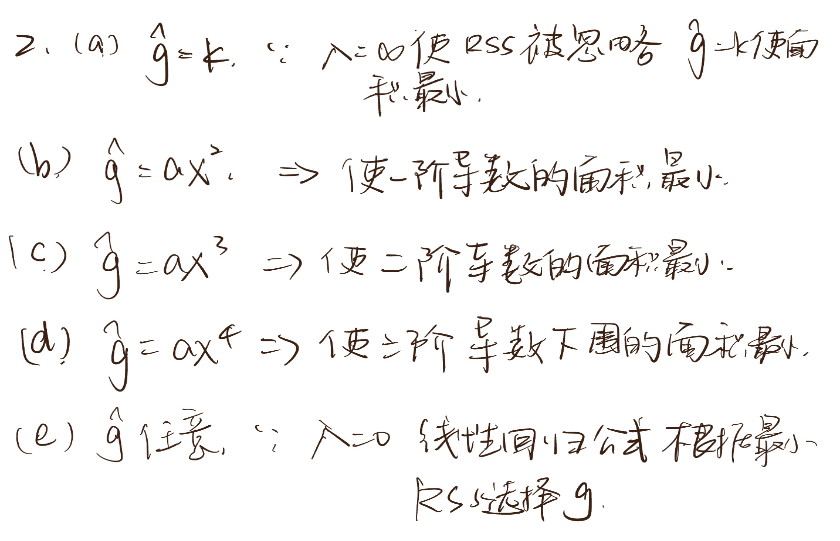 2. (a) ĝ=k. ∵ λ=∞使RSS被忽略 ĝ=k使面
积最小.
(b) ĝ=ax². ⇒ 使一阶导数的面积最小.
(c) ĝ=ax³ ⇒ 使二阶导数的面积最小.
(d) ĝ=ax⁴ ⇒ 使三阶导数下围的面积最小.
(e) ĝ任意, ∵ λ=0 线性回归公式根据最小
RSS选择g.